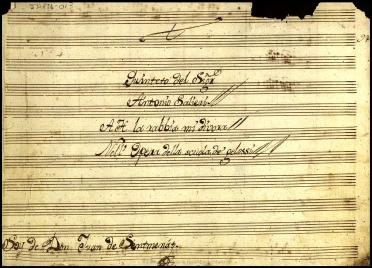 Quinteto del Sigr
Antonio Salieri
Ah la rabbia mi divora
Nell' Opera della scuola de' gelosi
Soy de Don Juan de Sentmenat.